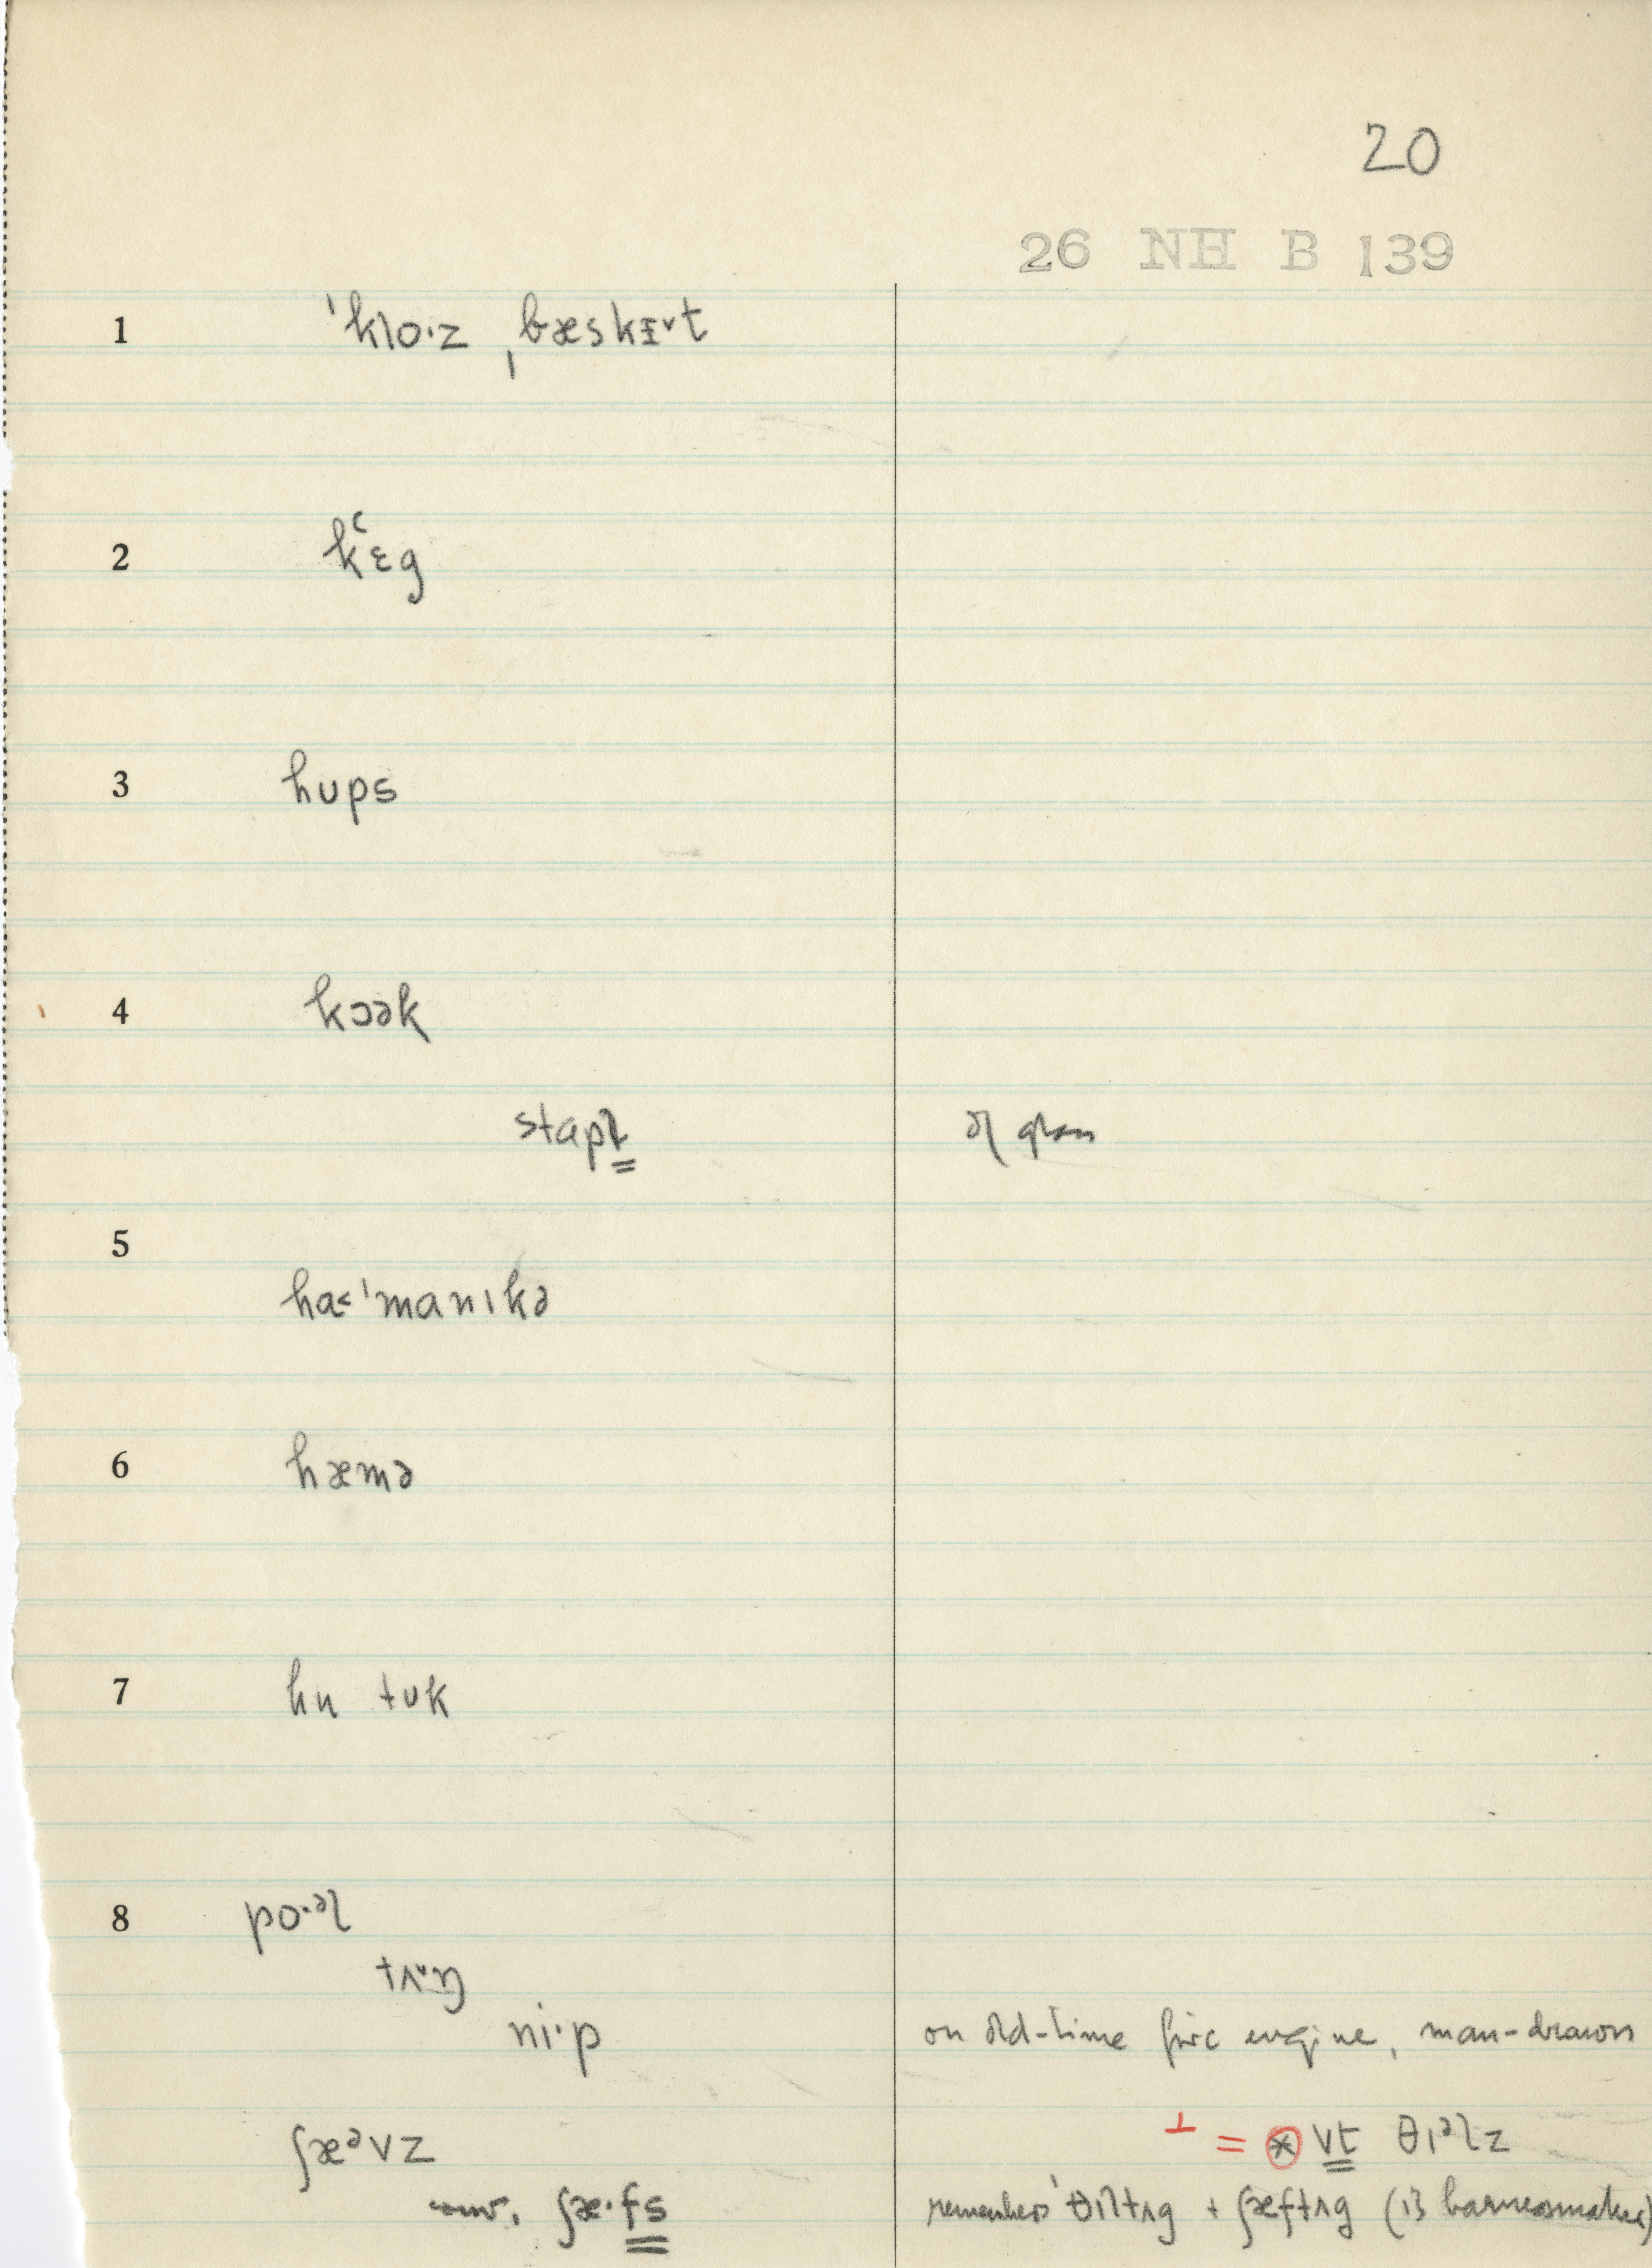 20
26 NH B 139
1 ˈkloˑz ˌbæskɪ˅t
2 kʽɛg
3 hʊps
4 kɔək
stapɫ of glass
5
ha˂ˈmanɪkə
6 hæmə
7 hn tʊk
8 poˑᵊɫ
tʌ˅ŋ
niˑp on old-time fire engine, man-drawn
ʃæᵊvz ⊥ = * vt θɪᵊɫz
conv. ʃæˑfs remembers ˈθɪɫtʌg + ʃæftʌg (is harnessmaker)